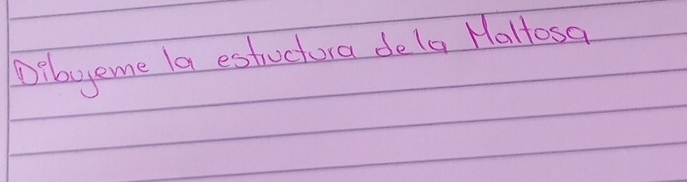 Dibujeme la estructura dela Maltosa